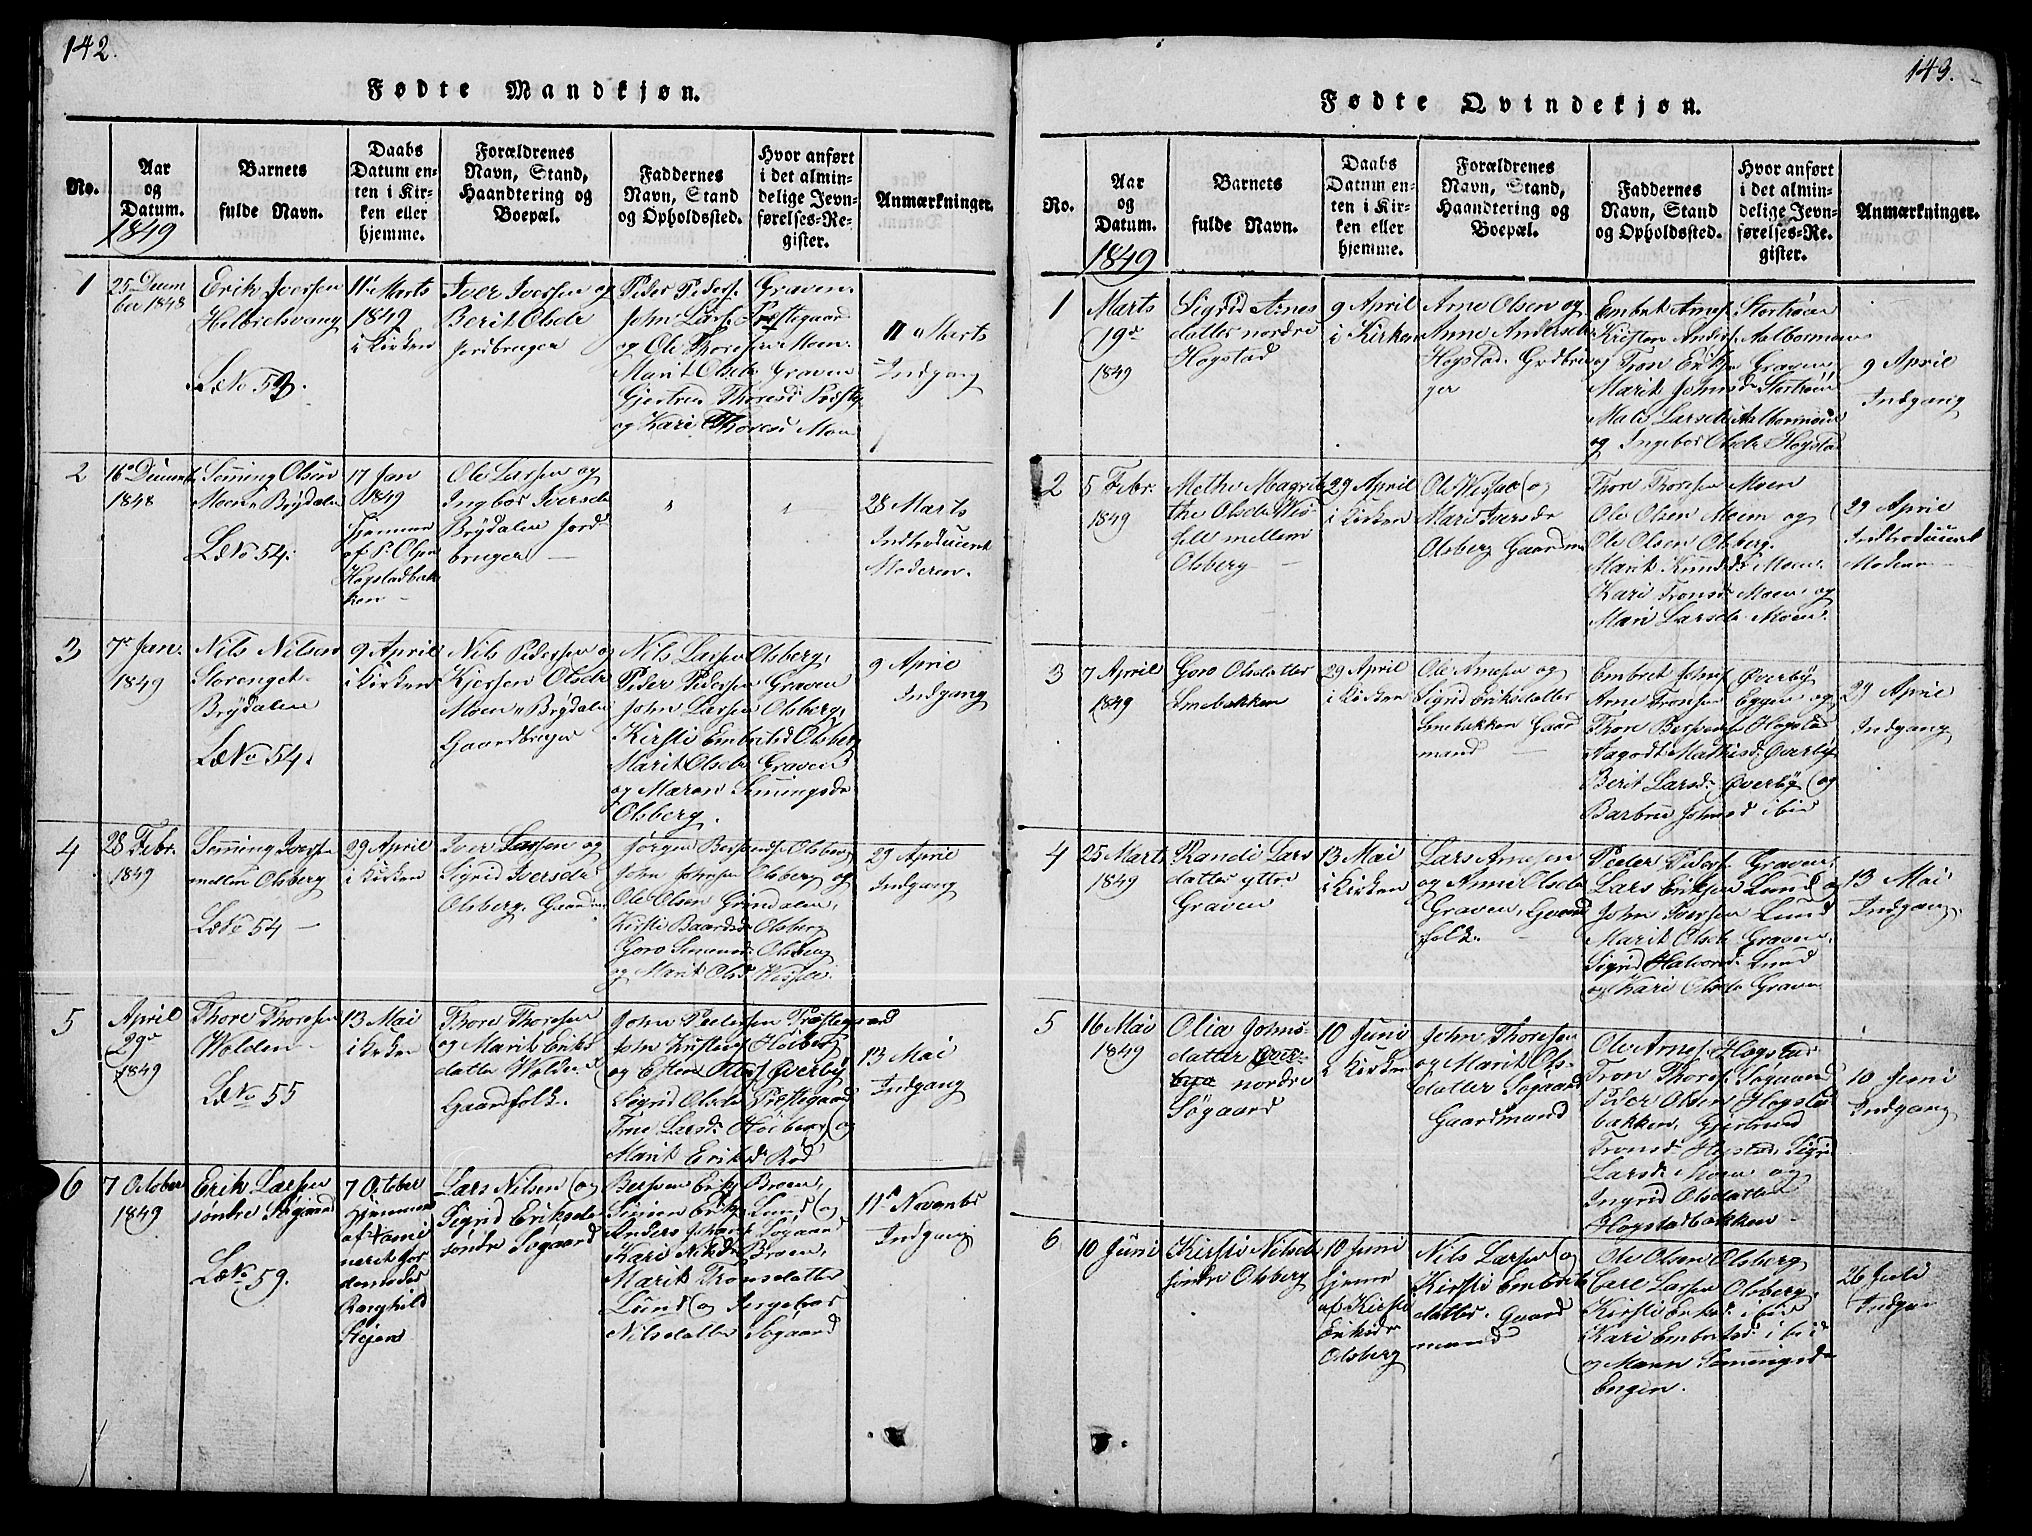 142.
Fødte Mandkjøn.
No.
Aar
og
Datum.
1849
Barnets
fulde Navn.
Daabs
Datum en-
ten i Kir-
ken eller
hjemme.
Forældrenes
Navn, Stand,
Haandtering og
Boepæl.
Faddernes
Navn, Stand
og Opholdssted.
Hvor anført
i det almin-
delige Jevn-
førelses-Re-
gister.
Anmærkninger.
1
25 Decem
ber 1848
Erik Iversen
Helbrelsvang
L. No 59.
11 Marts
1849
i Kirken
Iver Iversen og
Berit Olsdr
Jordbruger
Peder Peders. Graven
John Lars. Prestegaard
og Ole Thoresen Moen.
Marit Olsdr Graven
Gjertrud Thoresd
og Kari Thoresd Moen
11 Marts
Indgang
2
16 Decemb
1848
Semming Olsen
Moen Brydalen
L. No 54.
17 Jan
1849
Hjemme
af P. Olsen
Hogstadbak
ken
Ole Larsen og
Ingbor Iversdr
Brydalen Jord
bruger
"
"
28 Marts
Indtroducert
Moderen.
3
7 Jan.
1849
Nils Nilsen
Storenget
Brydalen
L. No 54.
9 April
i Kirken
Nils Pedersen og
Kjersten Olsdr
Moen Brydalen
Gaardbruger
Nils Larsen Olsberg,
Peder Pedersen Graven
John Larsen Olsberg,
Kirsti Embretsd Olsberg
Marit Olsdr Graven
og Maren Semingsdr
Olsberg.
9 April
Indgang
4
28 Febr.
1849
Semming Iversen
mellem Olsberg
L. No 54
29 April
i Kirken
Iver Larsen og
Sigrid Iversdr
Olsberg. Gaardm
Jørgen Bersvends. Olsberg
John Johnsen Olsberg og
Ole Olsen Grindalen,
Kirsti Baardsd. Olsberg
Goro Semmingsd. Olsberg
og Marit Olsd
29 April
Indgang
5
April
29
1849
Thore Thoresen
Wolden
L. No 55
13 Mai
i Kirken
Thore Thoresen
og Marit Eriks
datter Wolden
Gaardfolk.
John Pedersen Præstegaard
John Høiberg
og Esten Overby
Sigrid Olsdr Præstegaard
Trne Larsd. Høiberg og
Marit Eriksd. Rød
13 Mai
Indgang
6
7 October
1849
Erik Larsen
søndre Søgaard
L. No 59.
7 October
hjemme
af
Ragnhild
Stejen
Lars Nilsen og
Sigrid Eriksdr
søndre Søgaard
Bersven Eriks. Broen,
Simen Eriks. Lund og
Anders Johans. Søgaard
Kari Nilsdr Broen,
Marit Tronsdatter
Lund og Ingebor
Nilsdatter Søgaard
11 Novembr
Indgang
143.
Fødte Qvindekjøn.
No.
Aar
og
Datum.
1849
Barnets
fulde Navn.
Daabs
Datum en-
ten i Kir-
ken eller
hjemme.
Forældrenes
Navn, Stand,
Haandtering og
Boepæl.
Faddernes
Navn, Stand
og Opholdssted.
Hvor anført
i det almin-
delige Jevn-
førelses-Re-
gister.
Anmærkninger.
1
Marts
19
1849
Sigrid Arnes
datter nordre
Hogstad
9 April
i Kirken
Arne Olsen og
Anne Andersdr
Hogstad. Grdbru
ger
Embret Arnes. Stortrøen
Kristen Anders. Aalbormoen
og Tron Eriks. Graven,
Marit Johnsd. Stortrøen
Mali Larsdr Aalbormoen
og Ingebor Olsdr Hogstad
9 April
Indgang
2
5 Febr.
1849
Methe Magrit
the Olsdr
mellem
Olsberg
29 April
i Kirken
Ole og
Mari Iversdr
Olsberg Gaardm
Thore Thoresen Moen
Ole Olsen Moen og
Ole Olsen Olsberg.
Marit Knudsd. Moen.
Kari Tronsd. Moen og
Mari Larsdr Moen.
29 April
Indtroducert
Moderen
3
7 April
1849
Goro Olsdatter
Smebakken
29 April
i Kirken
Ole Arnesen og
Sigrid Eriksdatter
Smebakken Gaar
mand
Embret Johns. Øverby
Arne Tronsen Eggen og
Thore Hogstad
Aagodt Mathisd. Øverby
Berit Larsd. Øverby og
Barbroe Johnsd ibid
29 April
Indgang
4
25 Mart
1849
Randi Lars
datter yttre
Graven
13 Mai
i Kirken
Lars Arnesen
og Anne Olsdr
Graven, Gaard
folk.
Peder Peders. Graven,
Lars Eriksen Lund og
John Iversen Lund
Marit Olsdr Graven,
Sigrid Halvorsd. Lund
og Kari Olsdr Graven
13 Mai
Indgang.
5
16 Mai
1849
Olia Johns-
datter
nordre
Søgaard
10 Juni
i Kirken
John Thoresen
og Marit Ols-
datter Søgaard
Gaardmand
Ole Arnes. Hogstad
Tron Thores. Søgaard
Peder Olsen Hogstad
bakken, Gjertrud
Tronsd. Hogstad, Sigri
Larsd. Moen og
Ingrid Olsdatter
Hogstadbakken
10 Juni
Indgang
6
10 Juni
Kirsti Nilsdr
søndre Olsberg
10 Juni
hjemme
af Kirsti
Eriksdr
Olsberg
Nils Larsen og
Kirsti Embret
datter. Gaard
mand
Ole Olsen Olsberg
Carl Larsen Olsberg,
Kirsti Eriksd. ibid
Kari Embretsd. ibid
og Maren Semmingsdr
Engen.
26 Juli
Indgan